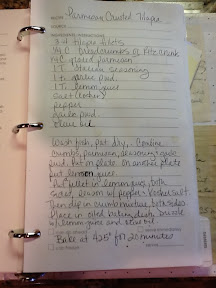 Parmesan Crusted Tilapia
3-4 tilapia filets
3/4 C breadcrumbs
1/4 C grated parmesan
1 T seasoning
1 t garlic powd
1 T lemon juice
Salt (kosher)
pepper
garlic powd
Olive oil
Wash fish, pat dry. Combine
crumbs, parmesan, seasoning, garlic
powd. Put on plate. On another plate
put lemon juice.
Put fillet in lemon juice, both
sides, season w/ pepper + kosher salt.
Then dip in crumb mixture, both sides
Place in oiled baking dish. Drizzle
w/ lemon juice and olive oil.
Bake at 425° for 20 minutes